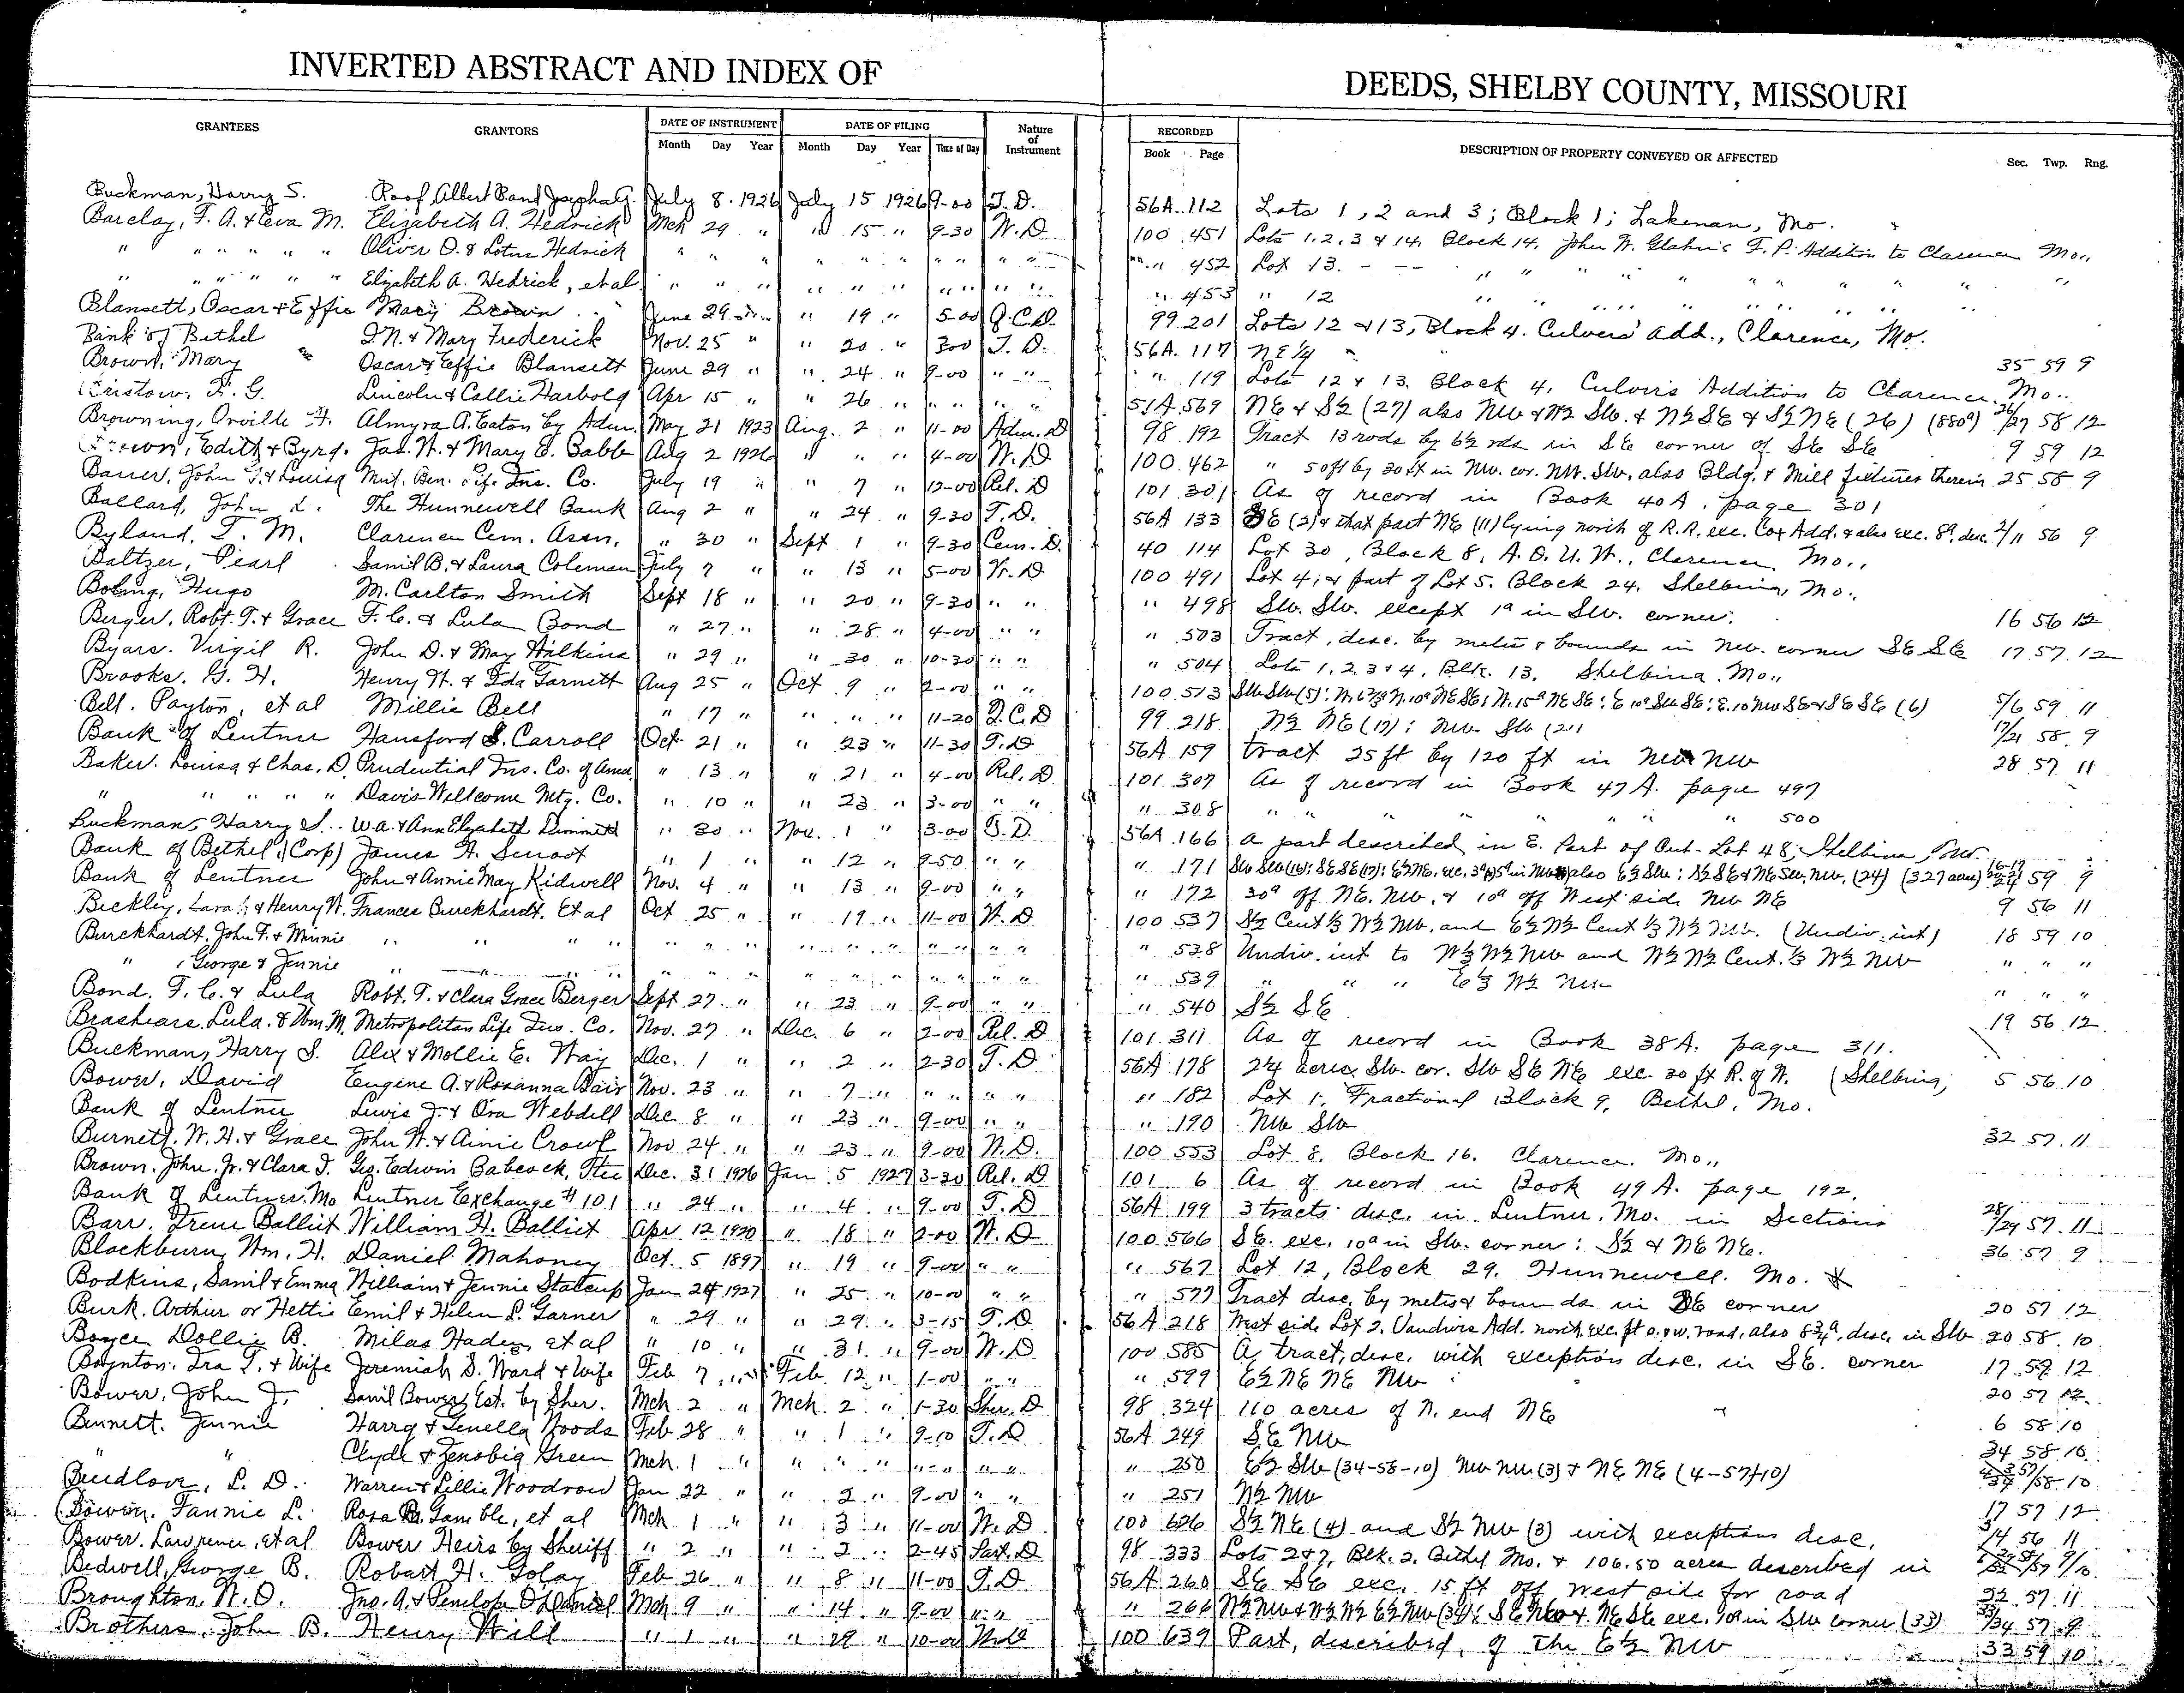 INVERTED ABSTRACT AND INDEX OF DEEDS, SHELBY COUNTY, MISSOURI
GRANTEES GRANTORS DATE OF INSTRUMENT DATE OF FILING Nature of Instrument RECORDED DESCRIPTION OF PROPERTY CONVEYED OR AFFECTED Sec. Twp. Rng.
Month Day Year Month Day Year Time of Day Book Page
Buckman, Harry S. Roof, Albert B and July 8 1926 July 15 1926 9-00 T.D. 56A 112 Lots 1, 2 and 3; Block 1; Lakenan, Mo.
Barclay, F. A. & Eva M. Elizabeth A. Hedrick Mch 29 " " 15 " 9-30 W.D 100 451 Lots 1, 2, 3 & 14, Block 14, John W. F. P. Addition to Clarence Mo.,
" " " " " Oliver O. & Lotus Hedrick " " " " " " " " " " " 452 Lot 13. - -- " " " " " " "
" " " " " Elizabeth A. Hedrick, et al " " " " " " " " " " " 453 " 12 " " " " " " "
Blansett, Oscar & Effie Mary Brown June 29 " " 19 " 5-00 Q.C.D. 99 201 Lots 12 & 13, Block 4. Culvers' Add., Clarence, Mo.
Bank of Bethel & Mary Frederick Nov. 25 " " 20 " 3-00 T.D. 56A. 117 NE 1/4 35 59 9
Brown, Mary Oscar & Effie Blansett June 29 " " 24 " 9-00 " " " 119 Lots 12 & 13. Block 4, Culver's Addition to Clarence, Mo..
Bristow, F. G. Lincoln & Callie Harbold Apr 15 " " 26 " " " " " 51A 569 NE & S½ (27) also NW & W½ SW. & N½ SE & S½ NE (26) (880a) 26/27 58 12
Browning, Orville H. Almyra A. Eaton by Adm. May 21 1923 Aug. 2 " 11-00 Adm. D 98 192 Tract 13 rods by 6½ rds in SE corner of SE SE 9 59 12
Brown, Edith & Byrd. Jas. W. & Mary E. Babb Aug 2 1926 " " " 4-00 W.D 100 462 " 50ft by 30ft in NW. cor. NW. SW., also Bldg. & Mill fixtures therein 25 58 9
Bauer, John T. & Louisa Mut. Ben. Life Ins. Co. July 19 " " 7 " 12-00 Rel. D 101 301 As of record in Book 40A, page 301
Ballard, John L. The Hunnewell Bank Aug 2 " " 24 " 9-30 T.D. 56A 133 SE (2) & that part NE (11) lying north of R.R. exc. Cox Add. & also exc. 8a. desc. 2/11 56 9
Byland, T. M. Clarence Cem. Assn. " 30 " Sept 1 " 9-30 Cem. D. 40 114 Lot 30, Block 8, A. O. U. W., Clarence, Mo.,
Baltzer, Pearl Saml B. & Laura Coleman July 7 " " 13 " 5-00 W.D 100 491 Lot 4; & part of Lot 5. Block 24, Shelbina, Mo..
Boling, Hugo M. Carlton Smith Sept 18 " " 20 " 9-30 " " " 498 SW. SW. except 1a in SW. corner. 16 56 12
Berger, Robt. T. & Grace F. C. & Lula Bond " 27 " " 28 " 4-00 " " " 503 Tract, desc. by metes & bounds in NW. corner SE SE 17 57 12
Byars. Virgil R. John D. & May Wilkins " 29 " " 30 " 10-30 " " " 504 Lots 1, 2, 3 & 4, Blk. 13, Shelbina, Mo.,
Brooks. G. H. Henry W. & Ida Garnett Aug 25 " Oct 9 " 2-00 " " 100 513 SW SW (5); N. 15a NE SE; E 10a SW SE; E. 10 NW SE & SE SE (6) 5/6 59 11
Bell. Payton, et al Millie Bell " 17 " " " " 11-20 Q.C.D 99 218 N½ NE (17); NW SW (21) 17/21 58 9
Bank of Lentner Hansford S. Carroll Oct 21 " " 23 " 11-30 T.D 56A 159 tract 25 ft by 120 ft in NW NW 28 57 11
Baker. Louisa & Chas. D. Prudential Ins. Co. of Ama " 13 " " 21 " 4-00 Rel. D 101 307 As of record in Book 47A. page 497
" " " " " Davis-Wellcome Mtg. Co. " 10 " " 23 " 3-00 " " " 308 " " " " " " 500
Buckman, Harry S. W.A. & Ann Elizabeth Dimmitt " 30 " Nov. 1 " 3-00 T.D. 56A 166 a part described in E. Part of Out-Lot 48, Shelbina, Mo.
Bank of Bethel (Corp) James H. Smoot " 1 " " 12 " 9-50 " " " 171 SW SW (16); SE SE (17); E½ NE, exc. also E½ SW; (24) (327 acres) 59 9
Bank of Lentner John & Annie May Kidwell Nov. 4 " " 13 " 9-00 " " " 172 30a off NE. NW. & 10a off West side NW NE 9 56 11
Bickley, Sarah & Henry W. Frances Burckhardt, Et al Oct 25 " " 19 " 11-00 W.D 100 537 S½ Cent ⅓ W½ NW. and E½ N½ Cent ⅓ W½ NW. (Undiv. int) 18 59 10
Burckhardt, John F. & Minnie " " " " " " " " " " " " " 538 Undiv. int to W⅓ W½ NW and W½ N½ Cent. ⅓ W½ NW " " "
" , George & Jennie " " " " " " " " " " " " " 539 " " " E⅓ W½ NW " " "
Bond. F. C. & Lula Robt. T. & Clara Grace Berger Sept 27 " " 23 " 9-00 " " " 540 S½ SE 19 56 12
Brashears, Lula. & Wm. M. Metropolitan Life Ins. Co. Nov. 27 " Dec. 6 " 2-00 Rel. D 101 311 As of record in Book 38A. page 311.
Buckman, Harry S. Alex & Mollie E. Way Dec. 1 " " 2 " 2-30 T.D 56A 178 acres, SW. cor. SW SE NE exc. 30 ft R. of W. (Shelbina, 5 56 10
Bower, David Eugene A. & Rosanna Bair Nov. 23 " " 7 " " " " " " 182 Lot 1, Fractional Block 9, Bethel, Mo.
Bank of Lentner Lewis J. & Ora Webdell Dec 8 " " 23 " 9-00 " " " 190 NW SW 32 57 11
Burnett. W. H. & Grace John W. & Aimie Crowl Nov 24 " " 23 " 9-00 W.D. 100 553 Lot 8. Block 16. Clarence. Mo.,
Brown. John, Jr. & Clara I. Geo. Edwin Babcock, Tte Dec. 31 1926 Jan 5 1927 3-30 Rel. D 101 6 As of record in Book 49A. page 192.
Bank of Lentner, Mo Lentner Exchange #101 " 24 " " 4 " 9-00 T.D 56A 199 3 tracts desc. in Lentner. Mo. in Sections 28/29 57 11
Barr. Irene Balliet William H. Balliet Apr 12 1920 " 18 " 2-00 W.D 100 566 SE. exc. 10a in SW. corner; S½ & NE NE. 36 57 9
Blackburn, Wm. H. Daniel Mahoney Oct. 5 1897 " 19 " 9-00 " " " 567 Lot 12, Block 29. Hunnewell. Mo.
Bodkins, Saml & Emma William & Jennie Stalcup Jan 24 1927 " 25 " 10-00 " " " 577 Tract desc. by metes & bounds in SE corner 20 57 12
Burk. Arthur or Hettie Emil & Helen L. Garner " 29 " " 29 " 3-15 T.D 56A 218 West side Lot 2. Vandivers Add. north, exc. road, also 8¾a, desc. in SW 20 58 10
Boyce Dollie B. Milas Haden, et al " 10 " " 31 " 9-00 W.D 100 585 A tract, desc. with exception desc. in SE. corner 17 59 12
Boynton. Ira T. & Wife Jeremiah S. Ward & Wife Feb 7 " Feb. 12 " 1-00 " " " 599 E½ NE NE NW 20 57 12
Bower, John J. Saml Bower Est. by Sher. Mch 2 " Mch. 2 " 1-30 Sher. D 98 324 110 acres of N. end NE 6 58 10
Bennett. Jennie Harry & Lenella Woods Feb 28 " " 1 " 9-10 T.D 56A 249 SE NW 34 58 10
" " Clyde & Zenobia Green Mch. 1 " " " " " " " " 250 E½ SW (34-58-10) NW NW (3) & NE NE (4-57-10)
Bredlove, L. D. Warren & Lillie Woodrow Jan 22 " " 2 " 9-00 " " " 251 N½ NW 17 57 12
Bowen. Fannie L. Rosa Gamble, et al Mch 1 " " 3 " 11-00 W.D 100 626 S½ NE (4) and S½ NW (3) with exception desc. 3/4 56 11
Bower. Lawrence, et al Bower Heirs by Sheriff " 2 " " 2 " 2-45 Part. D 98 333 Lots 2 & 7, Blk. 2. Bethel Mo. & 106.50 acres described in
Bedwell, George B. Robert H. Golay Feb 26 " " 8 " 11-00 T.D 56A 260 SE SE exc. 15 ft off west side for road 32 57 11
Broughton, W. O. Jno. A. & Penelope O'Daniel Mch 9 " " 14 " 9-00 " " " 266 W½ NW & W½ W½ E½ NW (34); & NE SE exc. 10a in SW corner (33) 33/34 57 9
Brothers, John B. Henry Will " 1 " " 29 " 10-00 W.D 100 639 Part, described, of the E½ NW 33 59 10